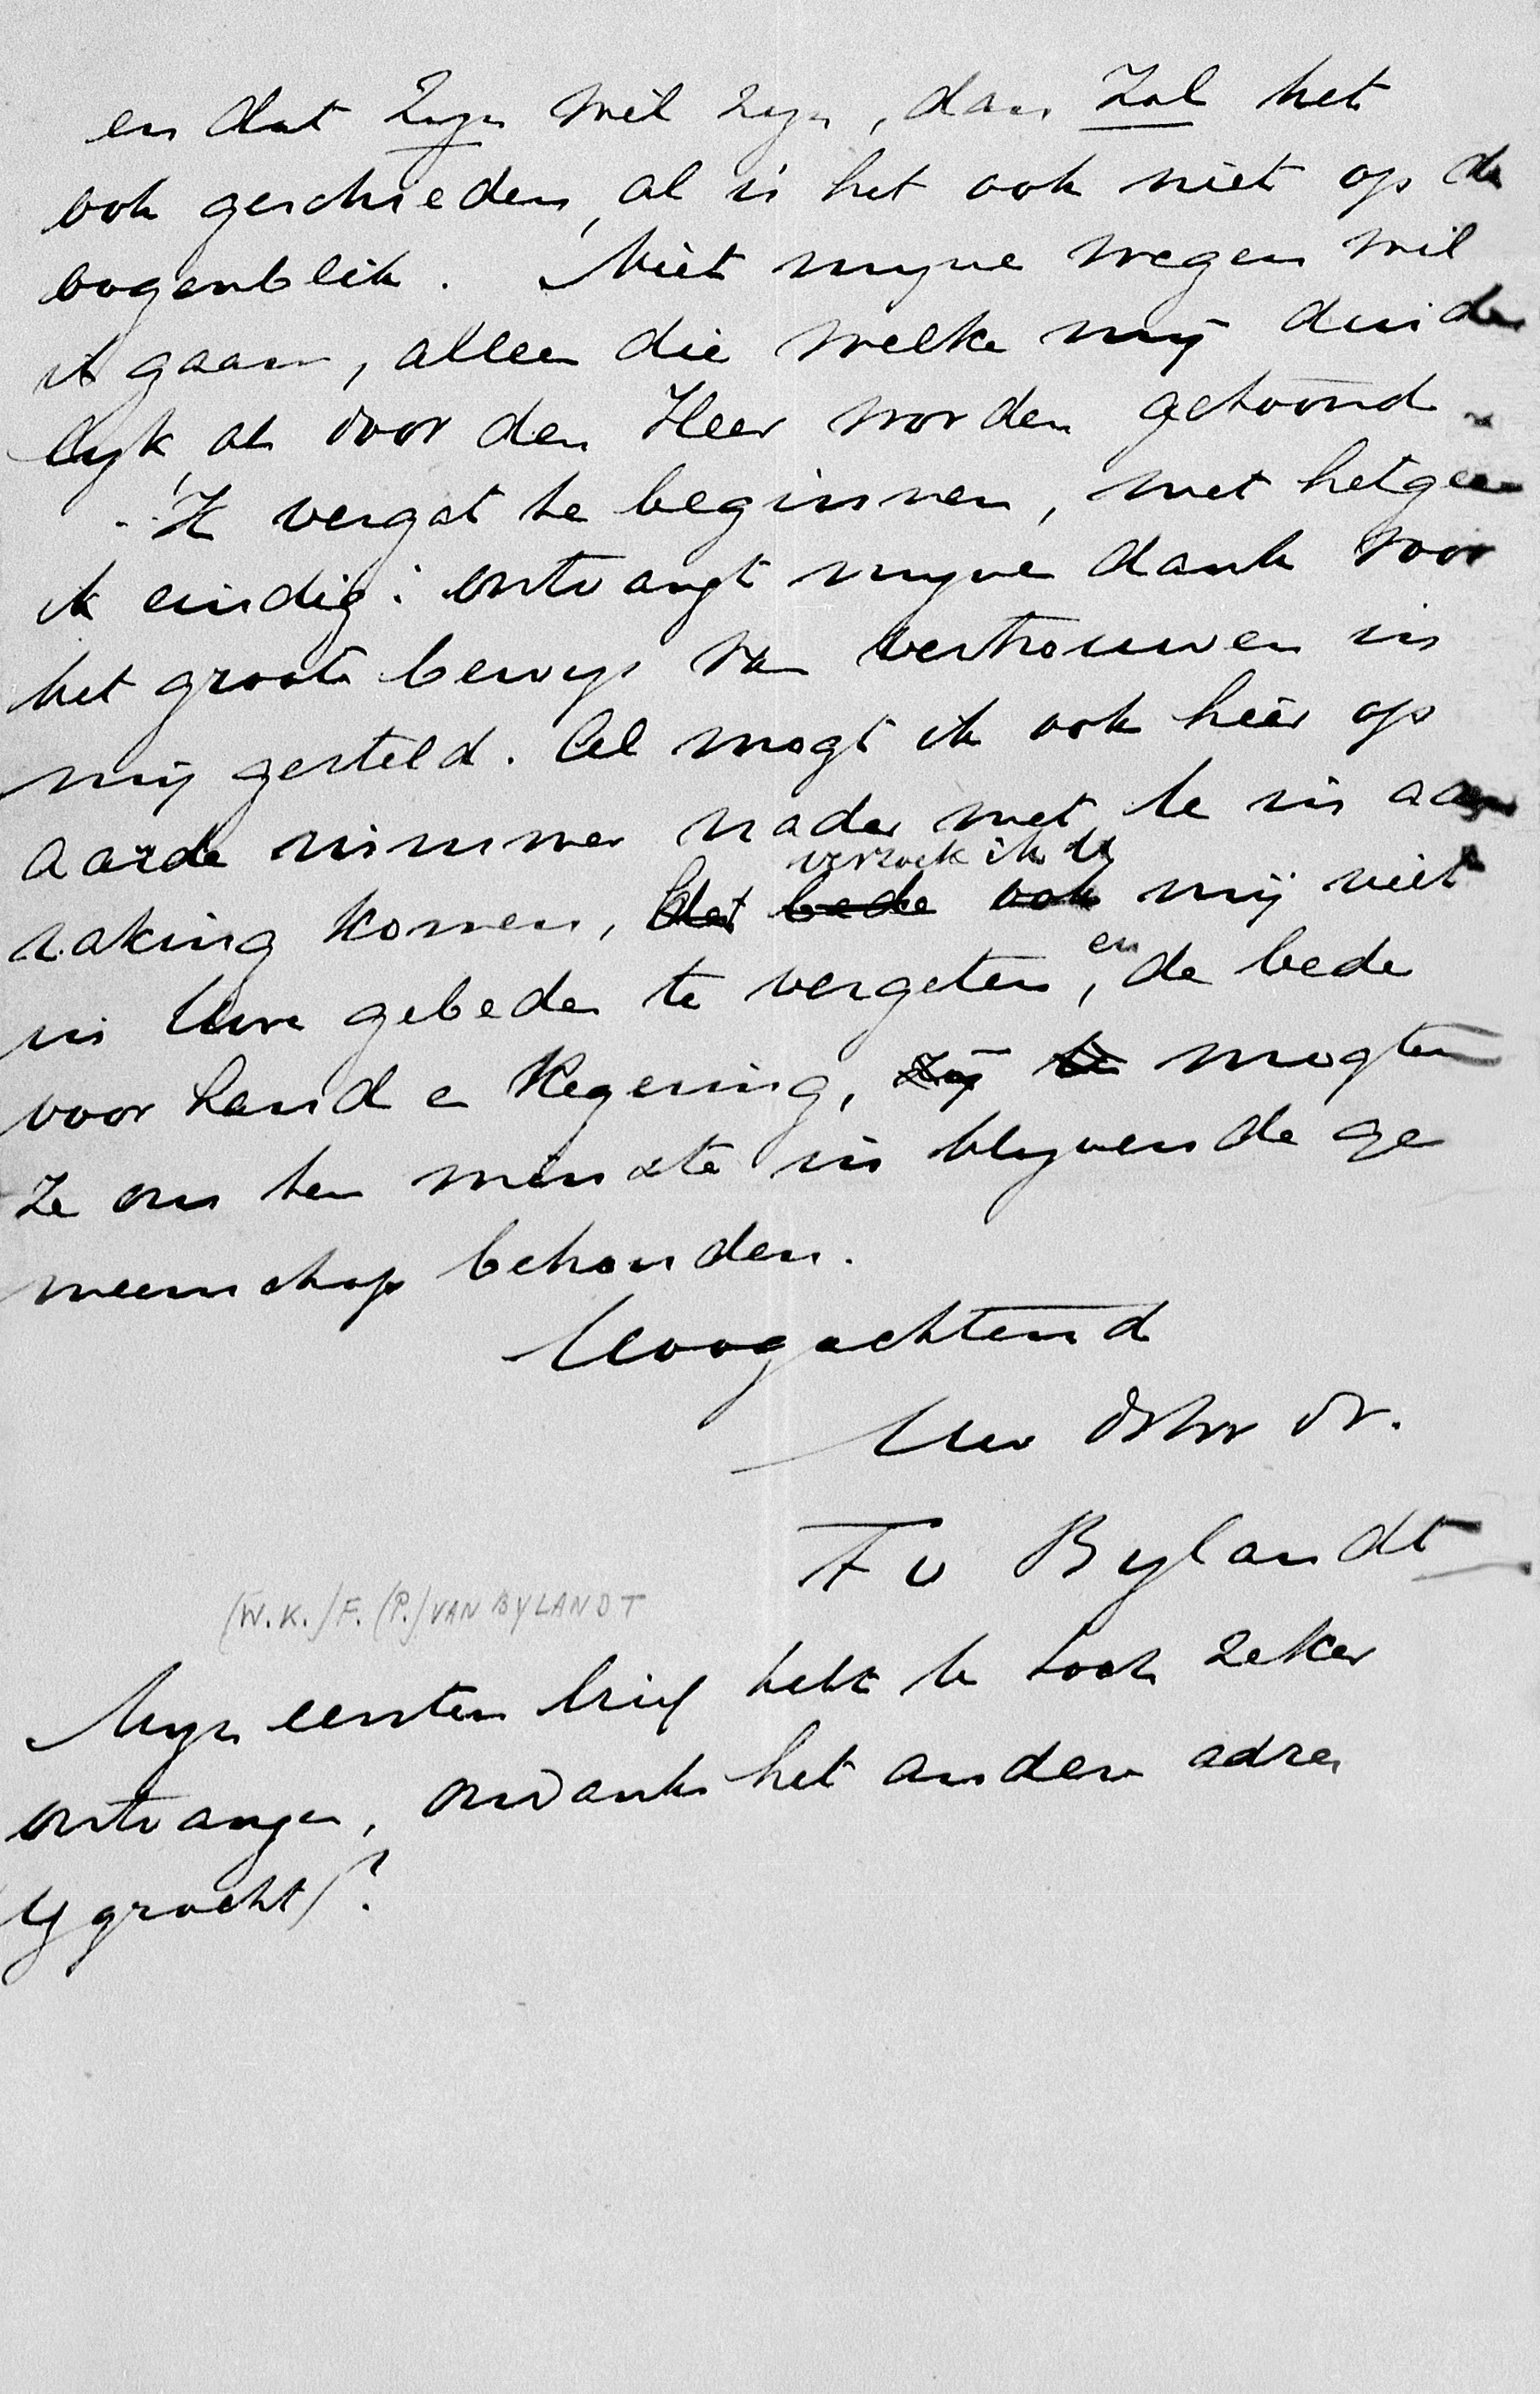 en dat Zyn wil zyn, dan Zal het
ook geschieden, al is het ook niet op de
oogenblik. Niet myne wegen wil
ik gaan, alleen die welke mij duide
lyk als door den Heer worden getoond.
Ik vergat te beginnen, met hetgeen
ik eindig: ontvangt myne dank voor
het groote bewys van vertrouwen in
mij gesteld. Al mogt ik ook hier op
aarde nimmer nader met U in aan
raking komen, verzoek ik U mij niet
in Uwe gebeden te vergeten, en de bede
voor Land en Regering, mogten
ze ons ten minste in blyvende ge
meenschap behouden.
Hoogachtend
Uw dw dr.
F v Bylandt
(W.K.) F. (P.) VAN BYLANDT
Myn eersten brief hebt U toch zeker
ontvangen, ondanks het andere adres
Ygracht)?